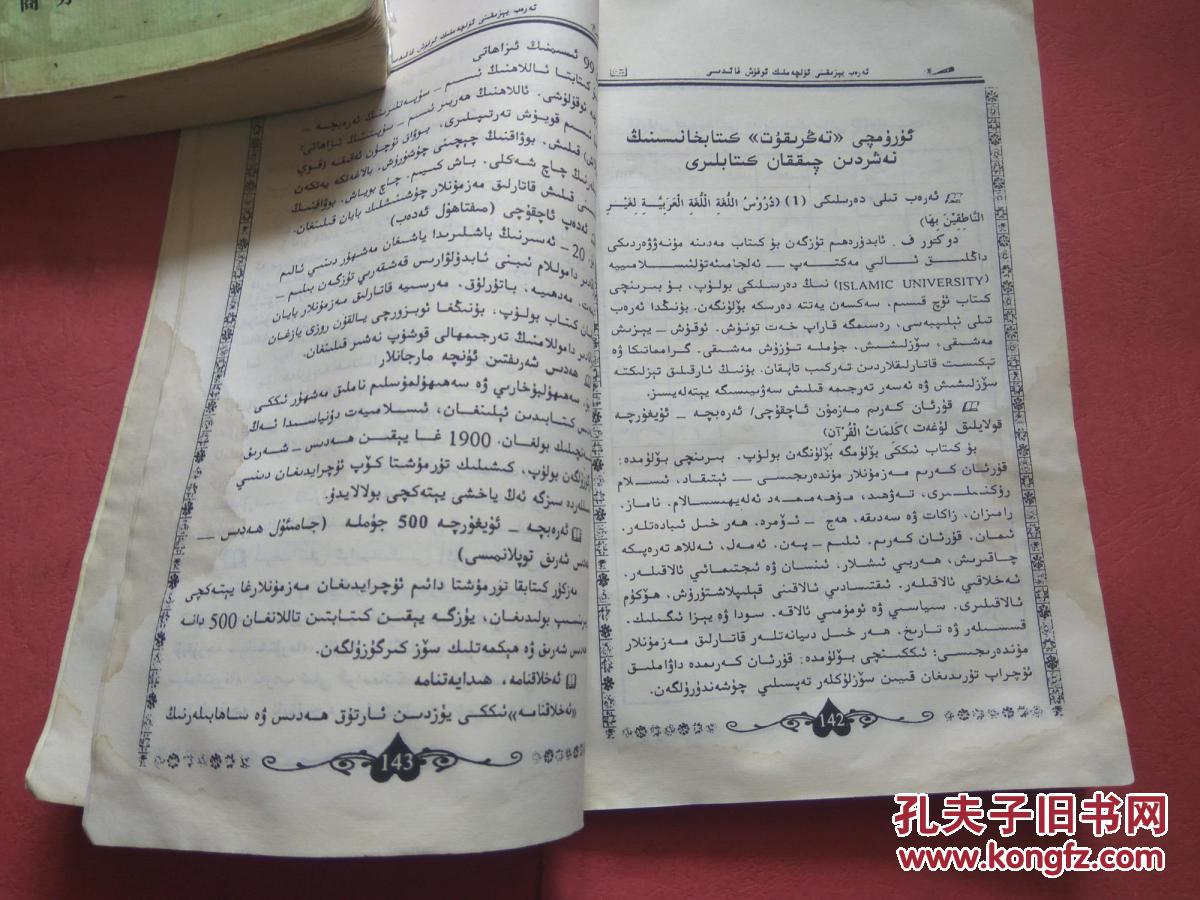 ئەرەب يېزىقىنى ئۆلچەملىك ئوقۇش قائىدىسى
ئۈرۈمچى «تەڭرىقۇت» كىتابخانىسىنىڭ
نەشردىن چىققان كىتابلىرى
ئەرەب تىلى دەرسلىكى (1) (دُرُوْسُ اللُّغَةِ اللُّغَةِ الْعَرَبِيَّــةِ لِغَيْــرِ
النَّاطِقِيْنَ بِهَا)
دوكتور ف. ئابدۇرەھىم تۈزگەن بۇ كىتاب مەدىنە مۇنەۋۋەردىكى
داڭلىق ئالىي مەكتەپ — ئەلجامىئەتۇلئىسلامىييە
(ISLAMIC UNIVERSITY) نىڭ دەرسلىكى بولۇپ، بۇ بىرىنچى
كىتاب ئۈچ قىسىم، سەكسەن يەتتە دەرسكە بۆلۈنگەن. بۇنىڭدا ئەرەب
تىلى ئېلىپبەسى، رەسىمگە قاراپ خەت تونۇش. ئوقۇش – يېزىش
مەشىقى، سۆزلىشىش، جۈملە تۈزۈش مەشىقى. گرامماتىكا ۋە
تېكىست قاتارلىقلاردىن تەركىب تاپقان. بۇنىڭ ئارقىلىق تېزلىكتە
سۆزلىشىش ۋە ئەسەر تەرجىمە قىلىش سەۋىيىسىگە يېتەلەيسىز.
قۇرئان كەرىم مەزمۇن ئاچقۇچى/ ئەرەبچە – ئۇيغۇرچە
قولايلىق لۇغەت )كَلِمَاتُ الْقُرْآنِ)
بۇ كىتاب ئىككى بۆلۈمگە بۆلۈنگەن بولۇپ. بىرىنچى بۆلۈمدە:
قۇرئان كەرىم مەزمۇنلار مۇندەرىجىسى — ئېتىقاد، ئىسلام
رۇكنىلىرى، تەۋھىد، مۇھەممەد ئەلەيھىسسالام. ناماز،
رامزان، زاكات ۋە سەدىقە، ھەج – ئۆمرە. ھەر خىل ئىبادەتلەر.
ئىمان. قۇرئان كەرىم. ئىلىم – پەن. ئەمەل، ئەللاھ تەرەپكە
چاقىرىش، ھەربىي ئىشلار، ئىنسان ۋە ئىجتىمائىي ئالاقىلەر.
ئەخلاقىي ئالاقىلەر. ئىقتىسادىي ئالاقىنى قېلىپلاشتۇرۇش، ھۆكۈم
ئالاقىلىرى. سىياسىي ۋە ئومۇمىي ئالاقە. سودا ۋە يېزا ئىگىلىك.
قىسسىلەر ۋە تارىخ. ھەر خىل دىيانەتلەر قاتارلىق مەزمۇنلار
مۇندەرىجىسى: ئىككىنچى بۆلۈمدە: قۇرئان كەرىمدە داۋاملىق
ئۇچراپ تۇرىدىغان قىيىن سۆزلۈكلەر تەپسىلىي چۈشەندۈرۈلگەن.
142
ئەرەب يېزىقىنى ئۆلچەملىك ئوقۇش قائىدىسى
99 ئىسىمنىڭ ئىزاھاتى
كىتابتا ئاللاھنىڭ ئىسىم – سۈپەتلىرىنىڭ ئەرەبچە –
ئوقۇلۇشى. ئاللاھنىڭ ھەربىر ئىسىم – سۈپىتىنىڭ ئىزاھاتى:
ئىسىم قويۇش تەرتىپلىرى، بوۋاق ئۈچۈن ئەقىقە (قوي
قىلىش. بوۋاقنىڭ چېچىنى چۈشۈرۈش. بالاغەتكە يەتكەن
چاچ شەكلى. باش كىيىم. چاچ بوياش. بوۋاقنىڭ
قىلىش قاتارلىق مەزمۇنلار چۈشىنىشلىك بايان قىلىنغان.
ئەدەپ ئاچقۇچى (مىفتاھۇل ئەدەب)
20 – ئەسىرنىڭ باشلىرىدا ياشىغان مەشھۇر دىنىي ئالىم
داموللام ئىبنى ئابدۇلۋارىس قەشقەرىي تۈزگەن بىلىم –
مەدھىيە، باتۇرلۇق. مەرسىيە قاتارلىق مەزمۇنلار بايان
كىتاب بولۇپ، بۇنىڭغا ئوبزورچى يالقۇن روزى يازغان
داموللامنىڭ تەرجىمھالى قوشۇپ نەشر قىلىنغان.
ھەدىس شەرىفتىن ئۈنچە مارجانلار
سەھىھۇلبۇخارىي ۋە سەھىھۇلمۇسلىم ناملىق مەشھۇر ئىككى
كىتابىدىن ئېلىنغان، ئىسلامىيەت دۇنياسىدا ئەڭ
بولغان. 1900 غا يېقىن ھەدىس – شەرىق
بولۇپ، كىشىلىك تۇرمۇشتا كۆپ ئۇچرايدىغان دىنىي
سىزگە ئەڭ ياخشى يېتەكچى بولالايدۇ.
ئەرەبچە – ئۇيغۇرچە 500 جۈملە (جامىئۇل ھەدىس —
ئەرىق توپلانمىسى)
مەزكۇر كىتابقا تۇرمۇشتا دائىم ئۇچرايدىغان مەزمۇنلارغا يېتەكچى
بولىدىغان، يۈزگە يېقىن كىتابتىن تاللانغان 500 دانە
شەرىق ۋە ھېكمەتلىك سۆز كىرگۈزۈلگەن.
ئەخلاقنامە، ھىدايەتنامە
«ئەخلاقنامە» ئىككى يۈزدىن ئارتۇق ھەدىس ۋە ساھابىلەرنىڭ
143
孔夫子旧书网
www.kongfz.com